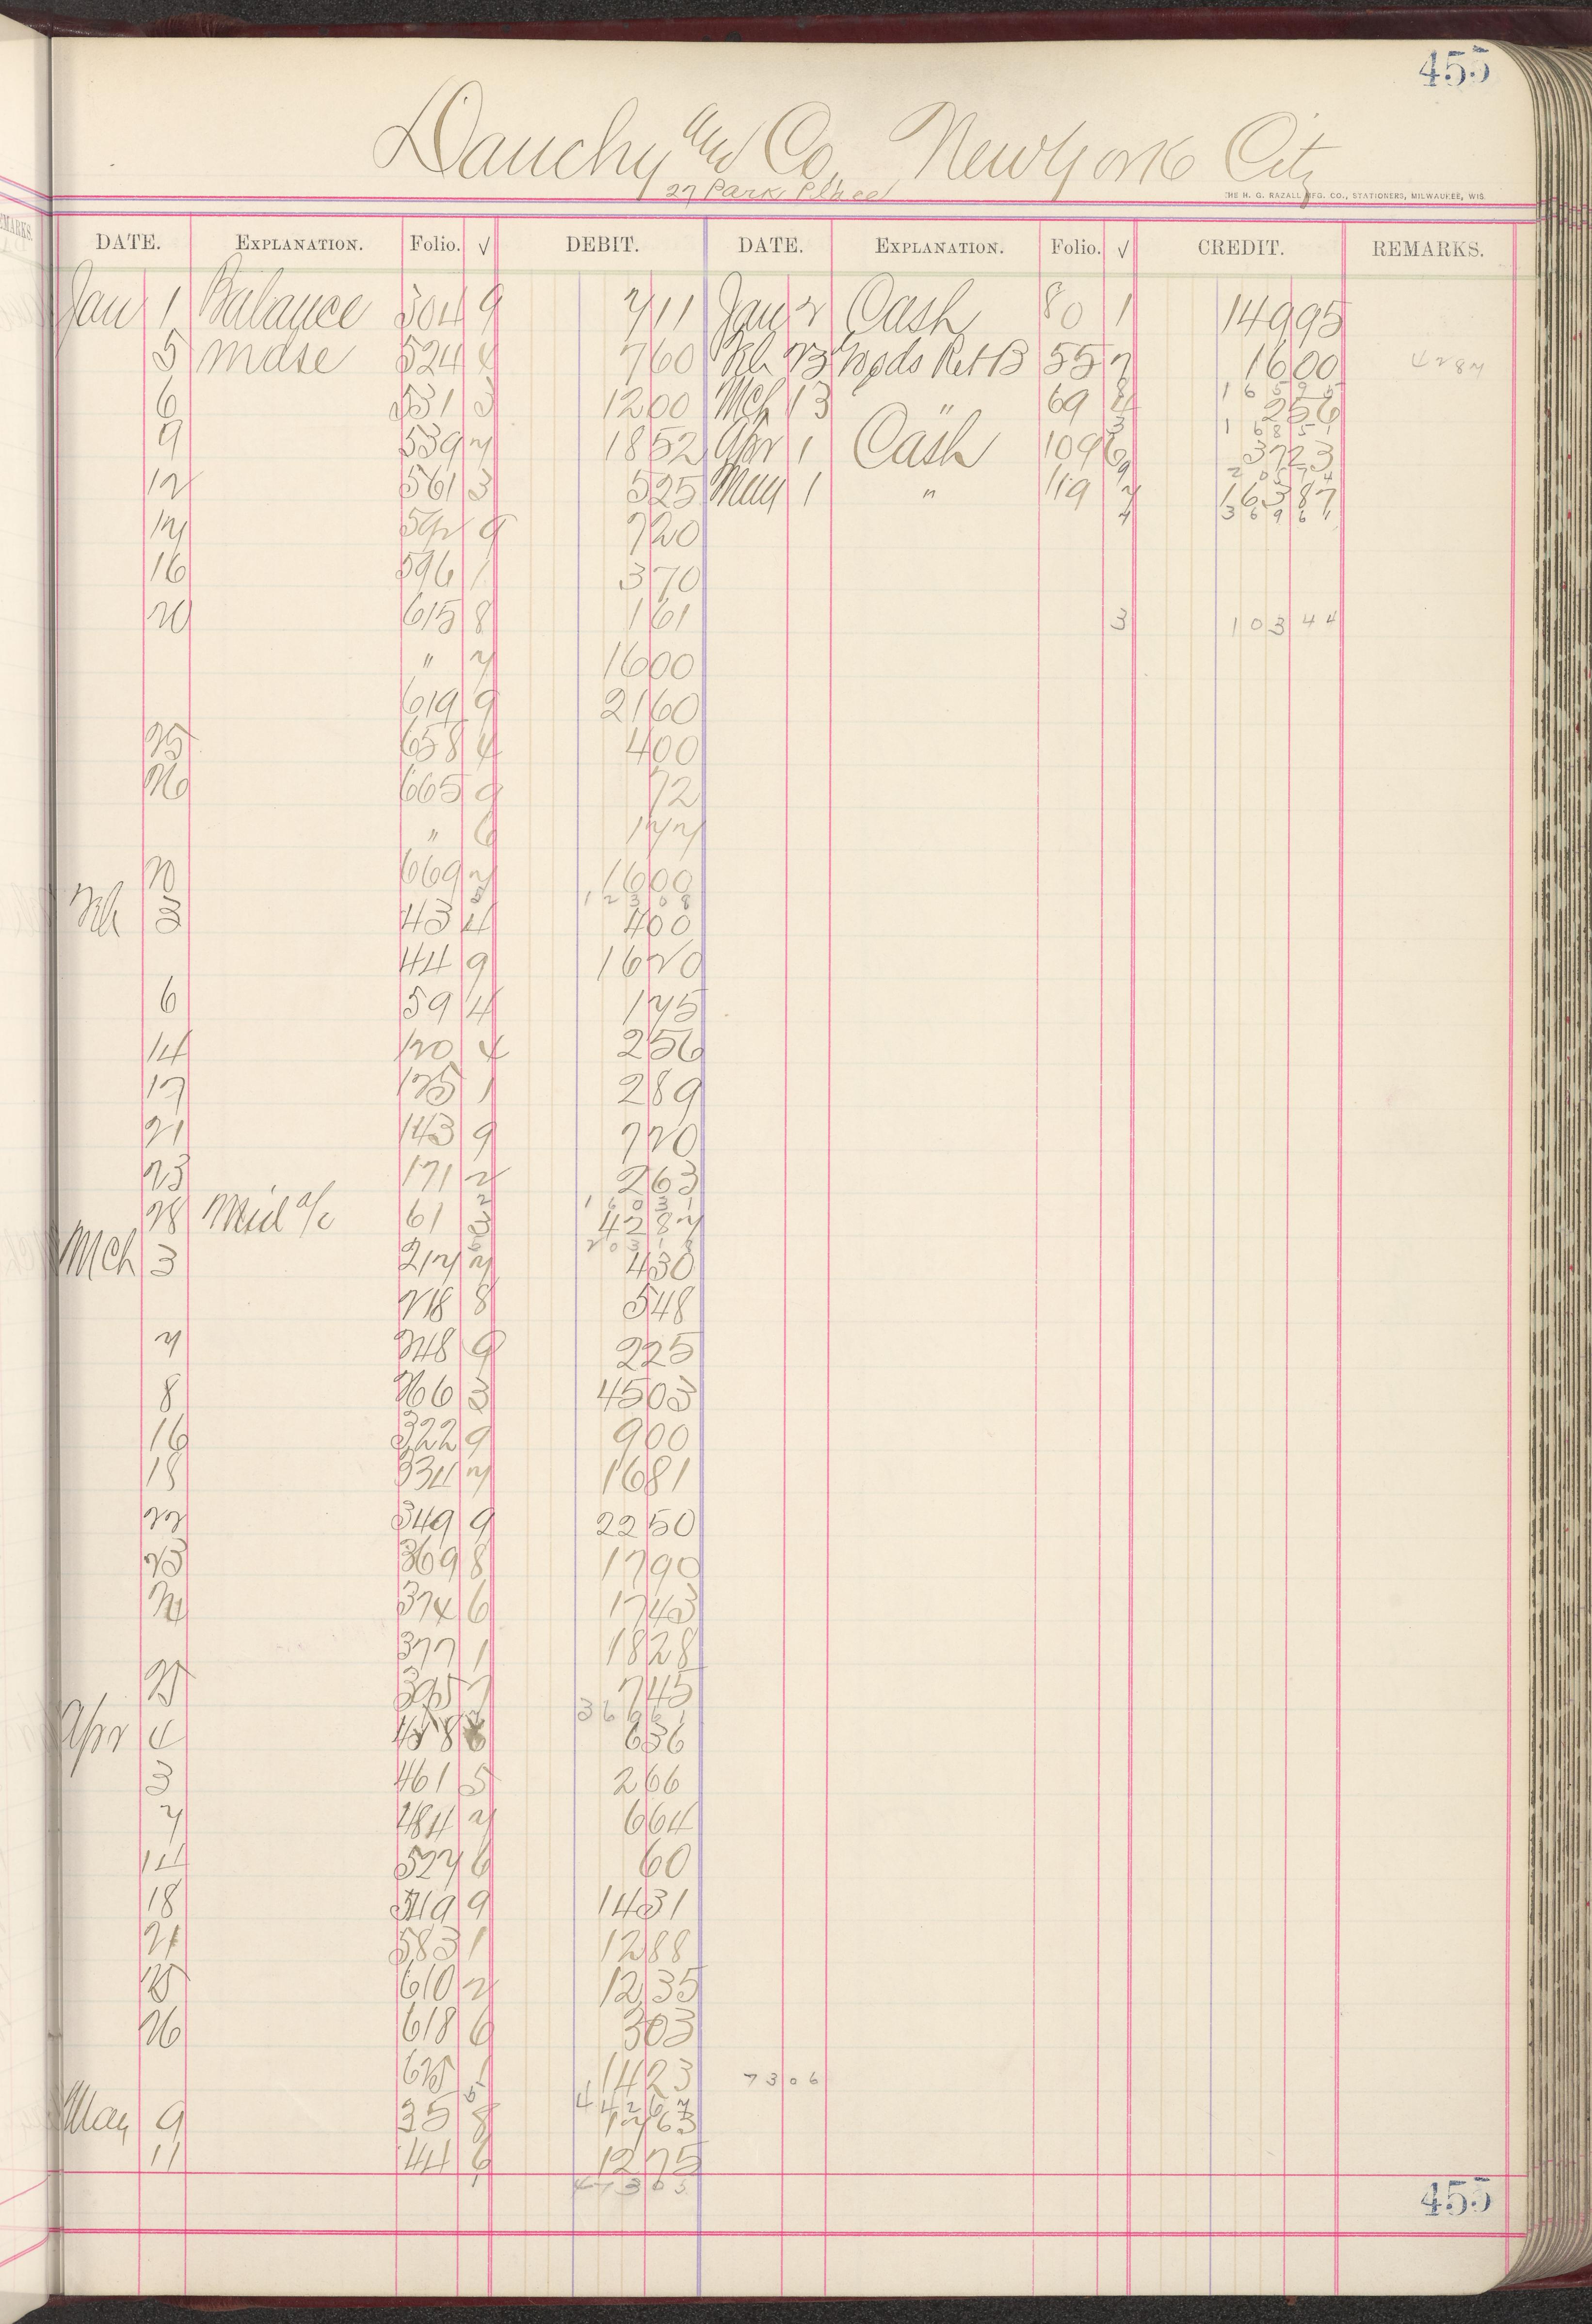 455
Dauchy and Co, New York City
27 Park Place
THE H. G. RAZALL MFG. CO., STATIONERS, MILWAUKEE, WIS.
DATE. EXPLANATION. Folio. √ DEBIT. DATE. EXPLANATION. Folio. √ CREDIT. REMARKS.
Jan 1 Balance 304 9 711 Jan 2 Cash 80 1 14995
5 Mdse 524 4 760 Feb 23 Goods Ret B 55 7 1600 4287
16595
6 531 3 1200 Mch 13 " 69 4 256
16851
9 539 7 1852 Apr 1 Cash 109 6 3723
20574
12 561 3 525 May 1 " 119 7 16387
36961
14 592 9 720
16 596 1 370
20 615 8 161 3 10344
" 7 1600
619 9 2160
25 658 4 400
26 665 9 72
" 6 177
669 7 1600
12308
Feb 3 43 4 400
44 9 1620
6 59 4 175
14 120 4 256
17 125 1 289
21 143 9 720
23 171 2 263
16031
28 Mil a/c 61 4287
20318
Mch 3 217 7 430
218 8 548
7 248 9 225
8 266 3 4503
16 322 9 900
18 334 7 1681
22 349 9 2250
23 369 8 1790
24 374 6 1743
377 1 1828
25 745
36961
Apr 4 636
3 461 5 266
7 484 7 664
14 527 6 60
18 549 9 1431
21 583 1 1288
25 610 2 1235
26 618 6 303
625 1 1423 7306
44267
May 9 35 8 1763
11 44 6 1275
47305
455